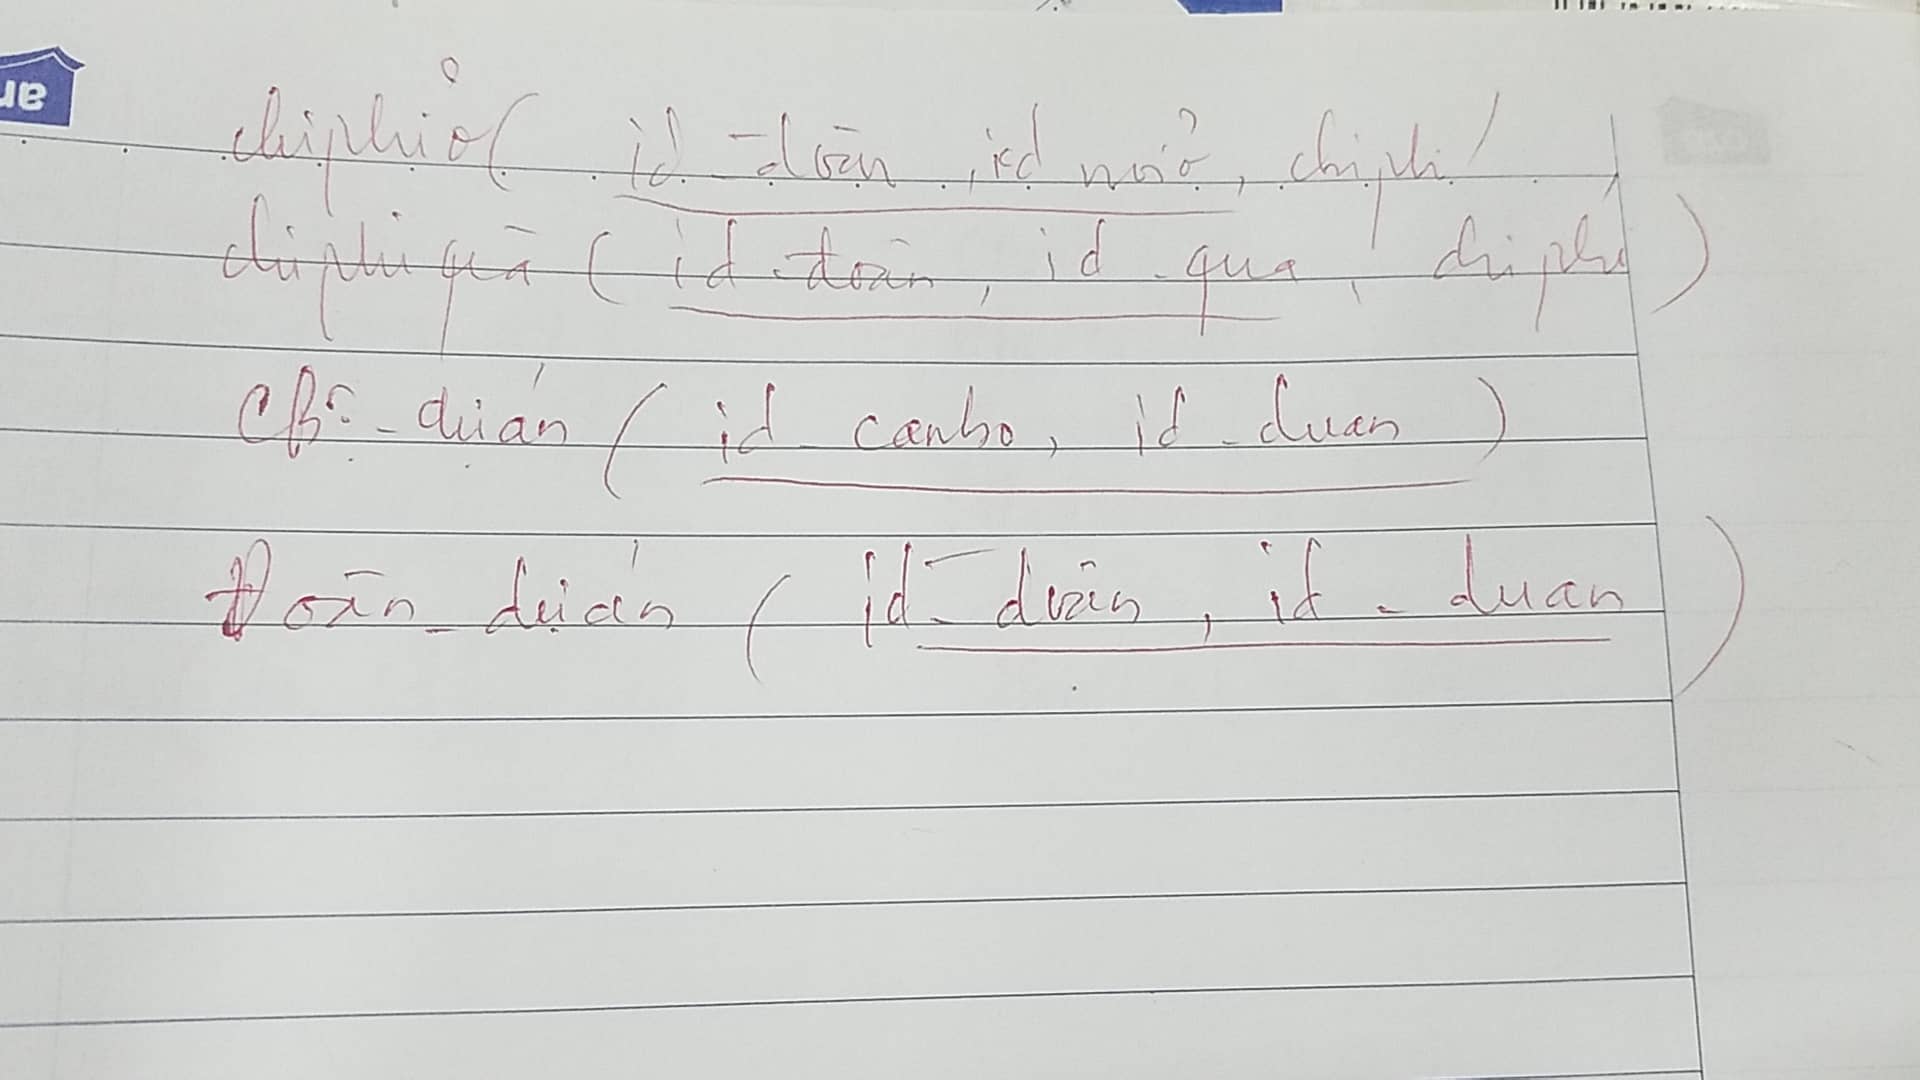 chiphiở( id_đoàn, id nơiở, chiphí )
chiphiquà ( id_đoàn, id_qua, chiphí )
CB_dựán ( id_canbo, id_duan )
Đoàn_dựán ( id_đoàn, id_duan )